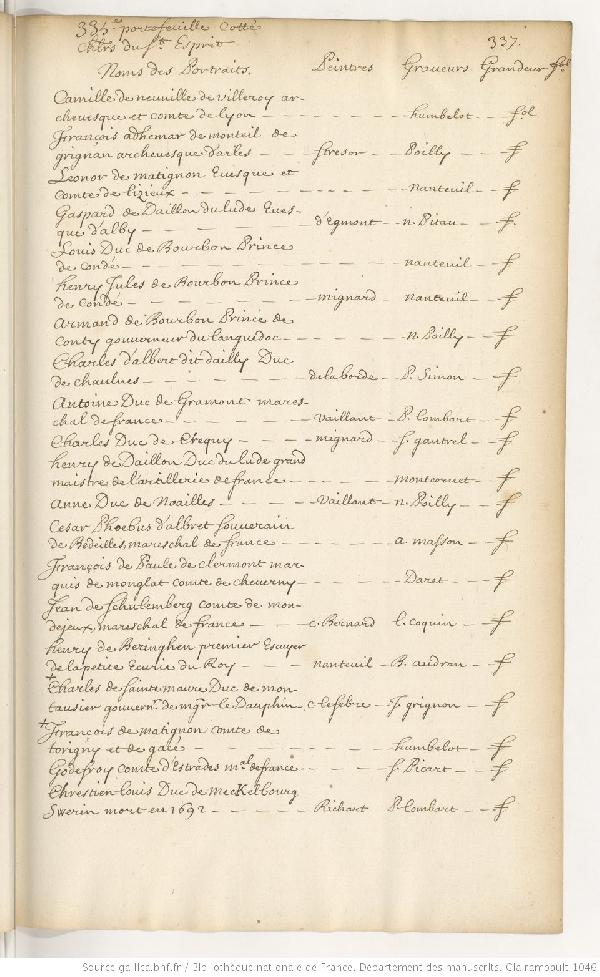 334.e portefeuille Cotté
Chlrs du St. Esprit
337.
Noms des Portraits. Peintres Graveurs Grandeur fol
Camille de neuville de villeroy ar-
chevesque et comte de lyon — humbelot — fol
François adhemar de monteil de
grignan archevesque d'arles — stresor — Poilly — f
Léonor de matignon Evesque et
comte de lizieux — nanteuil — f
Gaspard de Daillon du lude Eves-
que d'alby — d'Egmont — n. Pitau — f.
Louis Duc de Bourbon Prince
de condé — nanteuil — f
henry Jules de Bourbon Prince
de Condé — mignard — nanteuil — f
Armand de Bourbon Prince de
Conty gouverneur du languedoc — n. Poilly — f
Charles d'albert dit dailly Duc
de chaulnes — delaborde — P. Simon — f
Antoine Duc de Gramont mares-
chal de france — Vaillant — P. lombart — f
Charles Duc de Crequy — mignard — f. gantrel — f
henry de Daillon Duc du lude grand
maistre de l'artillerie de france — montcornet — f
Anne Duc de Noailles — Vaillant — n. Poilly — f
Cesar Phoebus d'albret souverain
de Bedeilles mareschal de france — a masson — f
François de Paule de clermont mar-
quis de monglat comte de cheverny — Daret — f
Jean de Schulemberg comte de mon-
dejeux, mareschal de france — c. Bernard l. coquin — f
henry de Beringhen premier Escuyer
de la petite Ecurie du Roy — nanteuil — B. audran — f
+ Charles de sainte maure Duc de mon-
tausier gouvern.r de mgr. le Dauphin, c lefebre — J. grignon — f
+ François de matignon comte de
torigny et de gacé — humbelot — f
Godefroy comte d'Estrades m.al de france — f. Picart — f
Chrestien louis Duc de mecKelbourg
Swerin mort en 1692 — Richart P. lombart — f
Source gallica.bnf.fr / Bibliothèque nationale de France. Département des manuscrits. Clairambault 1046